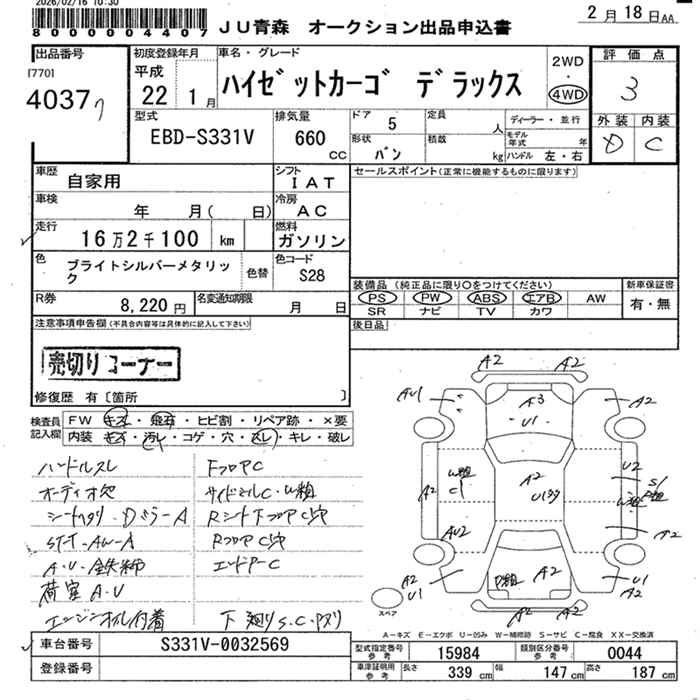 2026/02/16 10:30
8000004407
JU青森 オークション出品申込書
2月18日AA
出品番号
[770]
4037
初度登録年月
平成
22 1月
車名・グレード
ハイゼットカーゴ デラックス
2WD
・
4WD
評価点
3
外装 内装
D C
型式
EBD-S331V
排気量
660 CC
ドア 5
形状 バン
定員 人
積数 kg
ディーラー・並行
モデル年式 年
ハンドル 左・右
車歴
自家用
シフト
IAT
セールスポイント(正常に機能するものに限ります)
車検
年 月( 日)
冷房
AC
走行
16万2千100 km
燃料
ガソリン
色
ブライトシルバーメタリック
色替
色コード
S28
装備品 (純正品に限り○をつけてください)
PS PW ABS エアB AW
SR ナビ TV カワ
新車保証書
有・無
R券
8,220 円
名変通知期限
月 日
後日品
注意事項申告欄(不具合内容等は具体的に記入して下さい)
売切りコーナー
修復歴 有〔箇所 〕
検査員記入欄
FW キズ・飛石・ヒビ割・リペア跡・×要
内装 キズ・汚レ・コゲ・穴・スレ・キレ・破レ
ハンドルスレ
オーディオ欠
荷室 A.U
エンジンオイル付着
フロアC
サイドミルC・W粗
RフロアC穴
下廻りS.C.
A2 A2
AU1 A3 A2
U1
A2 W粗 C1 A2 U2
AU2 A2
A2 U1 A2 U1 A2
A2 A2
スペア
A-キズ E-エクボ U-凹み W-補修跡 S-サビ C-腐食 XX-交換済
車台番号
S331V-0032569
登録番号
型式指定番号 参考
15984
類別区分番号 参考
0044
車庫証明用 参考
長さ 339 cm
幅 147 cm
高さ 187 cm